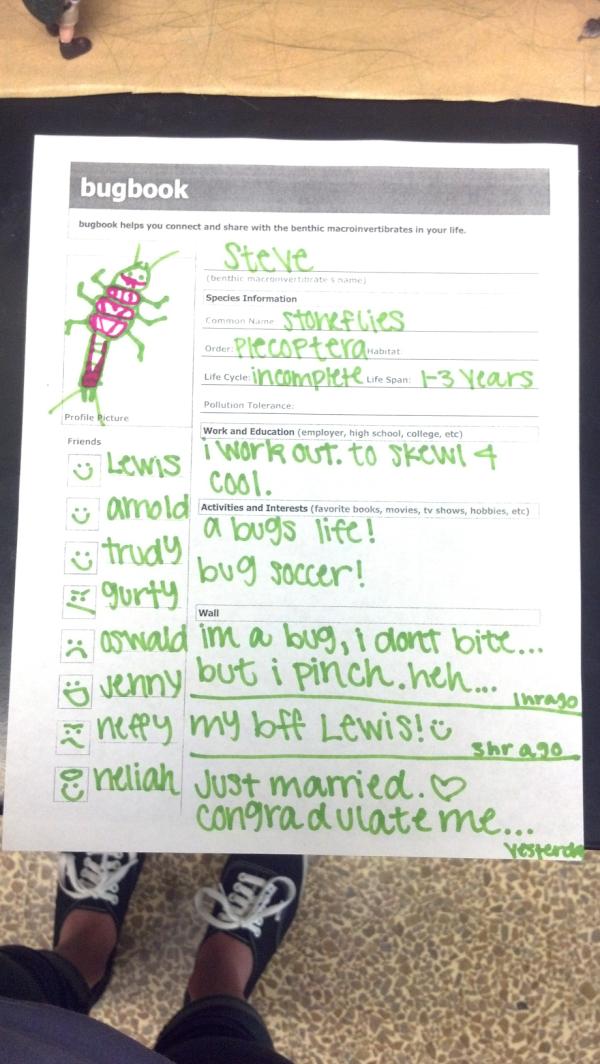 bugbook
bugbook helps you connect and share with the benthic macroinvertibrates in your life.
Steve
(benthic macroinvertibrate's name)
Species Information
Common Name: stoneflies
Order: Plecoptera Habitat:
Life Cycle: incomplete Life Span: 1-3 years
Pollution Tolerance:
Profile Picture
Work and Education (employer, high school, college, etc)
i work out. to skewl 4
cool.
Activities and Interests (favorite books, movies, tv shows, hobbies, etc)
a bugs life!
bug soccer!
Friends
Lewis
arnold
trudy
gurty
oswald
jenny
neffy
neliah
Wall
im a bug, i dont bite...
but i pinch. heh...
1hr ago
my bff Lewis!
5hr ago
Just married. ♡
congradulate me...
yesterda